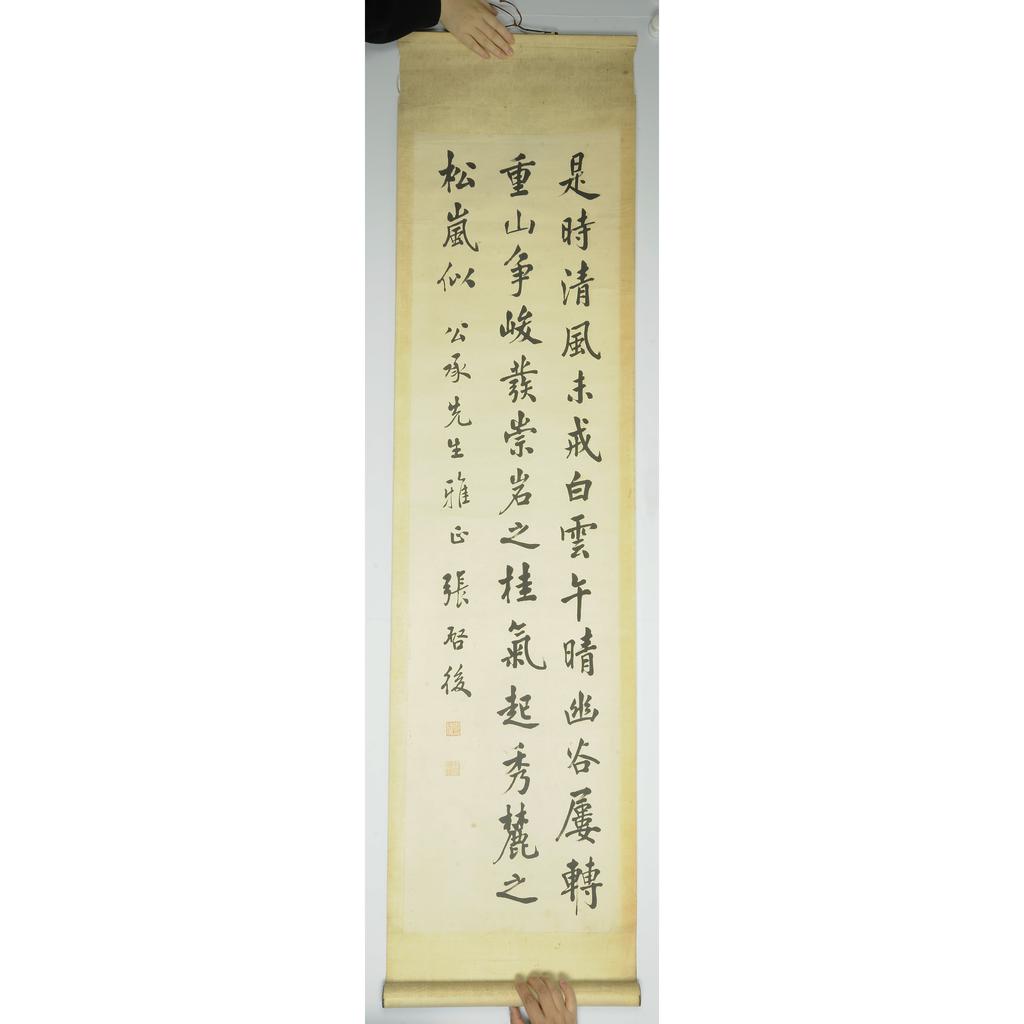 是時清風未戒白雲午晴幽谷屢轉
重山争峻發崇岩之桂氣起秀麓之
松嵐似 公承先生雅正 張啓後